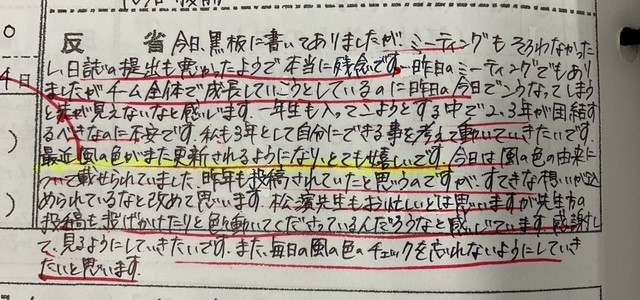 反 省 今日、黒板に書いてありましたが、ミーティングもそろわなかった
し、日誌の提出も悪かったようで本当に残念です。昨日のミーティングでもあり
ましたがチーム全体で成長していこうとしているのに昨日の今日でこうなってしまう
と先が見えないなと感じます。一年生も入ってこようとする中で2、3年が団結す
るべきなのに不安です。私も3年として自分にできる事を考えて動いていきたいです。
最近風の色がまた更新されるようになり、とても嬉しいです。今日は風の色の由来に
ついて載せられていました。昨年も投稿されていたと思うのですが、すてきな想いが込
められているなと改めて思います。松 先生もお忙しいとは思いますが先生方の
投稿も投げかけたりと色々動いてくださっているんだろうなと感じています。感謝し
て、見るようにしていきたいです。また、毎日の風の色のチェックを忘れないようにしていき
たいと思います。
4日